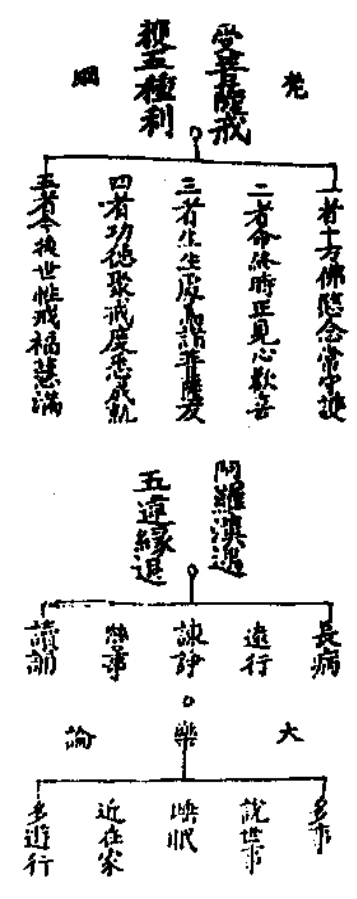 梵
網
受菩薩戒
摂五種利
一者十方佛愍念常守護
二者命終時正見心歡喜
三者生生處為諸菩薩友
四者功德聚戒度悉成就
五者今後世性戒福慧滿
阿羅漢遇
五違緣退
長病
遠行
諫諍
營事
讀誦
大
樂
論
多事
說世事
睡眠
近在家
多遊行